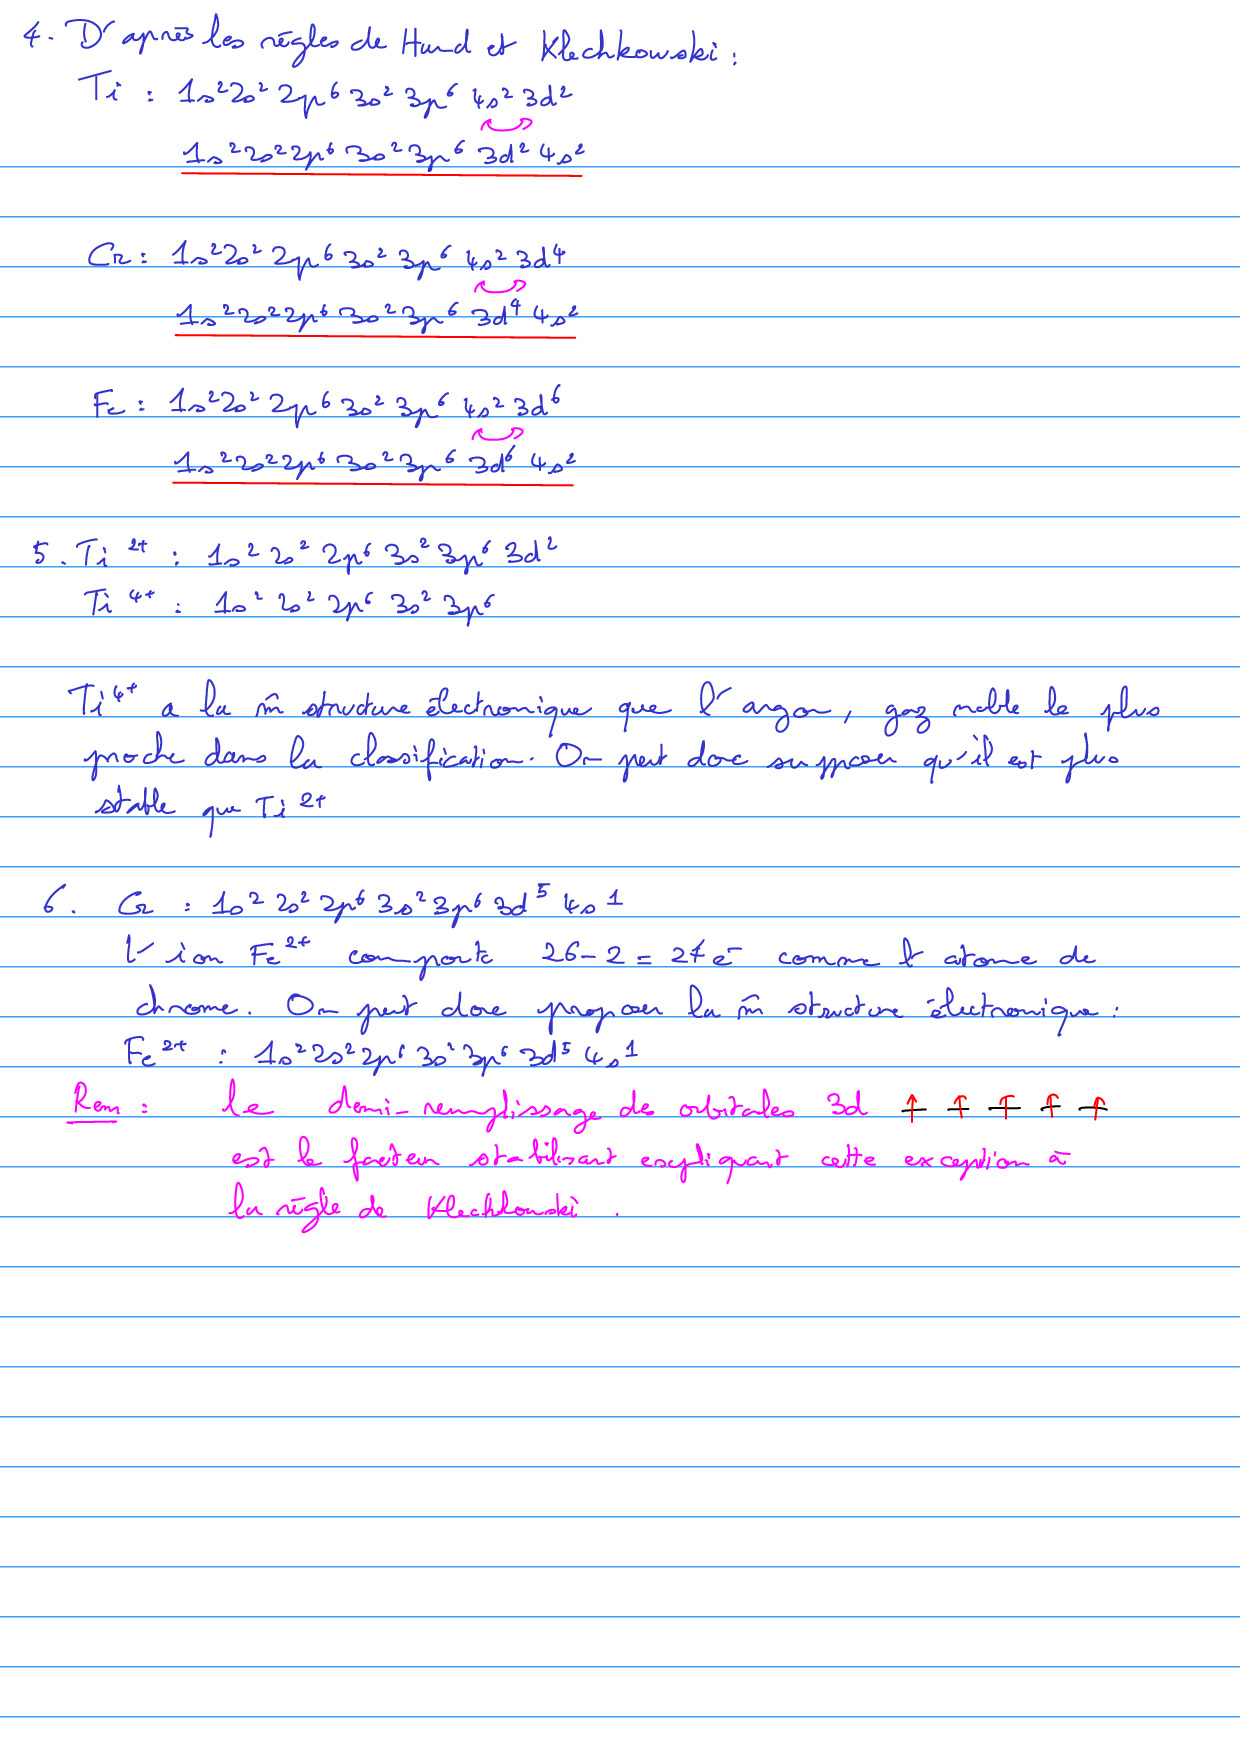 4. D'après les règles de Hund et Klechkowski :
Ti : 1s² 2s² 2p⁶ 3s² 3p⁶ 4s² 3d²
1s² 2s² 2p⁶ 3s² 3p⁶ 3d² 4s²
Cr : 1s² 2s² 2p⁶ 3s² 3p⁶ 4s² 3d⁴
1s² 2s² 2p⁶ 3s² 3p⁶ 3d⁴ 4s²
Fe : 1s² 2s² 2p⁶ 3s² 3p⁶ 4s² 3d⁶
1s² 2s² 2p⁶ 3s² 3p⁶ 3d⁶ 4s²
5. Ti²⁺ : 1s² 2s² 2p⁶ 3s² 3p⁶ 3d²
Ti⁴⁺ : 1s² 2s² 2p⁶ 3s² 3p⁶
Ti⁴⁺ a la m̂ structure électronique que l'argon, gaz noble le plus
proche dans la classification. On peut donc supposer qu'il est plus
stable que Ti²⁺
6. Cr : 1s² 2s² 2p⁶ 3s² 3p⁶ 3d⁵ 4s¹
L'ion Fe²⁺ comporte 26 - 2 = 24 e⁻ comme l'atome de
chrome. On peut donc proposer la m̂ structure électronique :
Fe²⁺ : 1s² 2s² 2p⁶ 3s² 3p⁶ 3d⁵ 4s¹
Rem : le demi-remplissage des orbitales 3d ↑ ↑ ↑ ↑ ↑
est le facteur stabilisant expliquant cette exception à
la règle de Klechkowski.